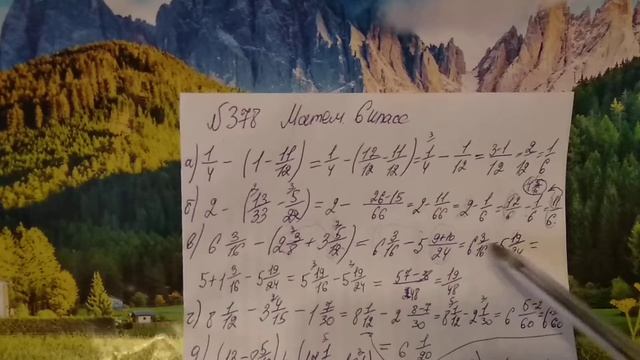 №378 Матем 6 класс
а) 1/4 - (1 - 11/12) = 1/4 - (12/12 - 11/12) = 1/4 - 1/12 = 3-1/12 = 2/12 = 1/6
б) 2 - (13/33 - 5/22) = 2 - 26-15/66 = 2 - 11/66 = 2 - 1/6 = 12/6 - 1/6 = 11/6
в) 6 3/16 - (2 3/8 + 3 5/12) = 6 3/16 - 5 9+10/24 = 6 3/16 - 5 19/24 =
5 + 1 3/16 - 5 19/24 = 5 19/16 - 5 19/24 = 57-38/48 = 19/48
г) 8 1/12 - 3 4/15 - 1 7/30 = 8 1/12 - 2 8-7/30 = 8 1/12 - 2 1/30 = 6 5-2/60 =
= 6 1/20